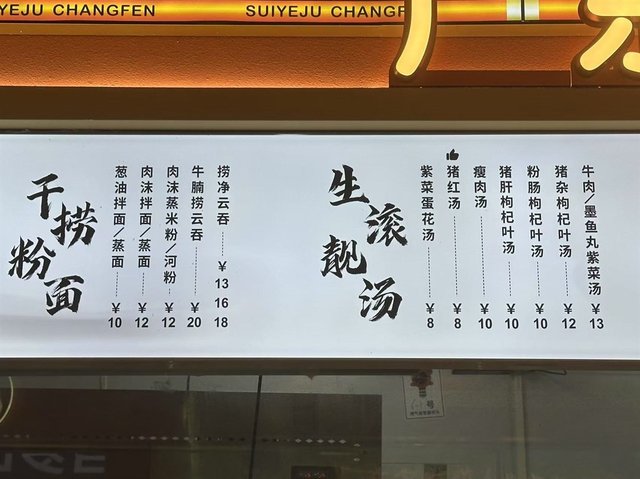 YEJU CHANGFEN
SUIYEJU CHANGF
干捞粉面
葱油拌面/蒸面 ¥10
肉沫拌面/蒸面 ¥12
肉沫蒸米粉/河粉 ¥12
牛腩捞云吞 ¥20
捞净云吞 ¥13 16 18
生滚靓汤
紫菜蛋花汤 ¥8
猪红汤 ¥8
瘦肉汤 ¥10
猪肝枸杞叶汤 ¥10
粉肠枸杞叶汤 ¥10
猪杂枸杞叶汤 ¥12
牛肉/墨鱼丸紫菜汤 ¥13
号